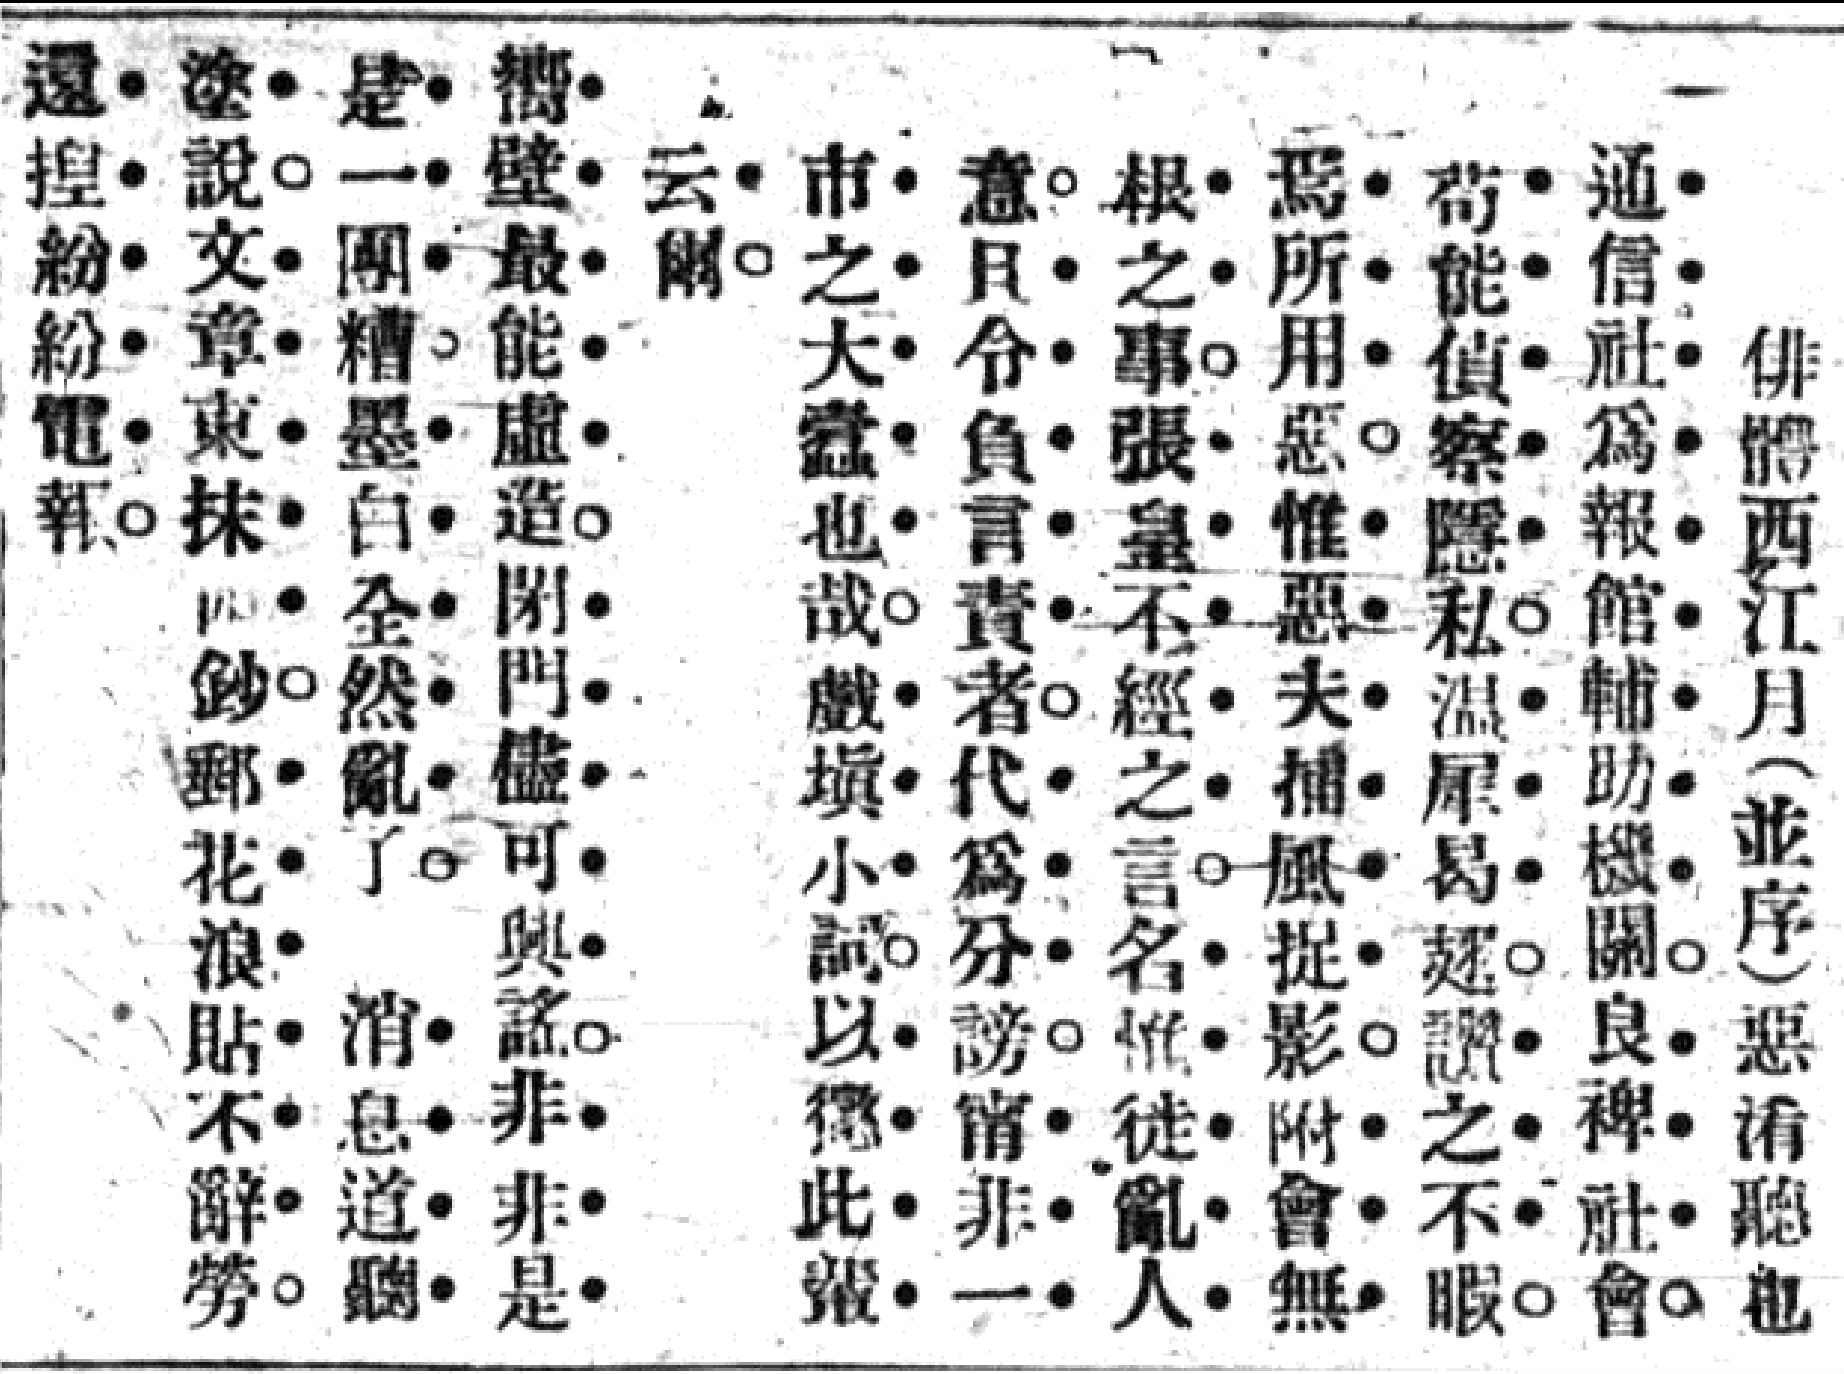 俳體西江月(並序)惡淆聽也
通信社爲報館輔助機關○良裨社會○
苟能偵察隱私○温犀曷趩○讚之不暇○
焉所用惡○惟惡夫捕風捉影○附會無
根之事○張皇不經之言○名惟徒亂人
意○且令負言責者○代爲分謗○甯非一
市之大蠹也哉○戲塡小詞○以懲此輩
云爾○
嚮壁最能虛造○閉門儘可興謠○非非是
是一團糟○墨白全然亂了○ 消息道聽
塗說○文章東抹西鈔○郵花浪貼不辭勞○
還揑紛紛電報○